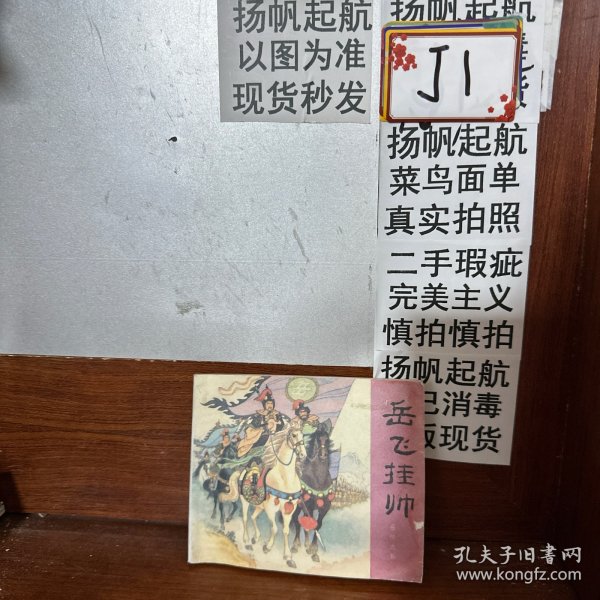 扬帆起航
以图为准
现货秒发
扬帆起航
J1
扬帆起航
菜鸟面单
真实拍照
二手瑕疵
完美主义
慎拍慎拍
扬帆起航
已消毒
现货
岳飞挂帅
孔夫子旧书网
www.kongfz.com